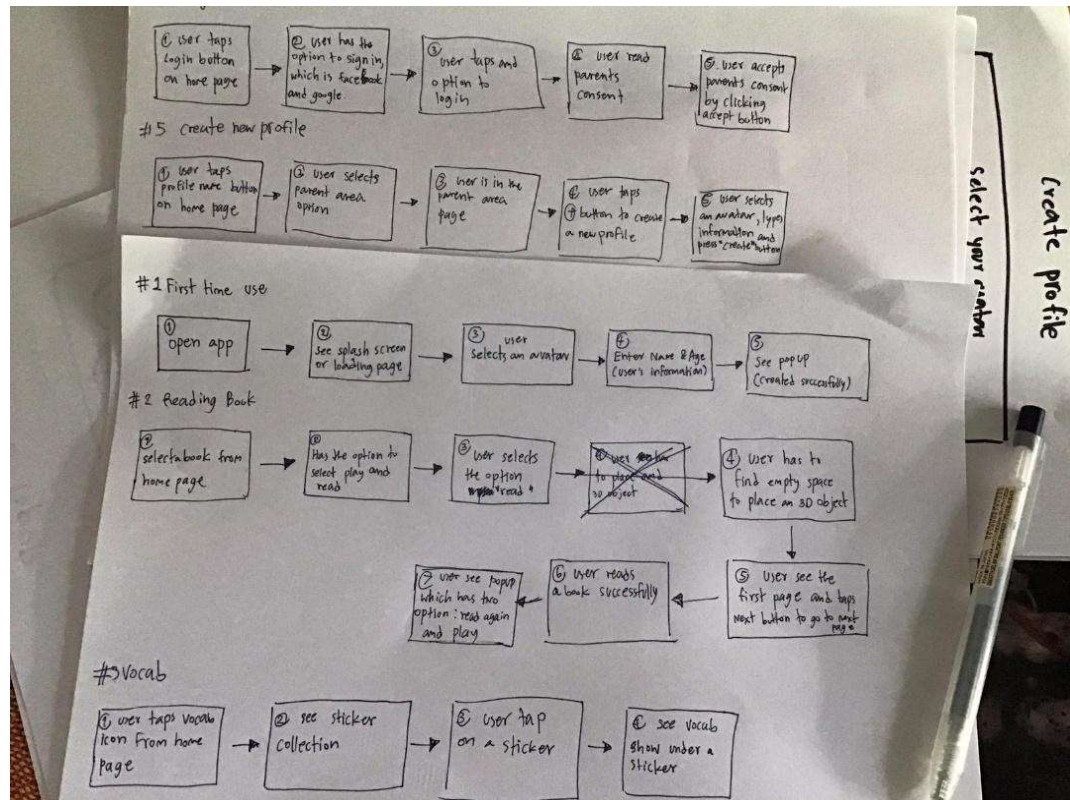 ① user taps
Login button
on home page
② user has the
option to sign in,
which is facebook
and google.
③
user taps and
option to
login
④ user read
parents
consent
⑤. user accepts
parents consent
by clicking
accept button
#5 Create new profile
① user taps
profile name button
on home page
② user selects
parent area
option
③ user is in the
parent area
page
④ user taps
⊕ button to create
a new profile
⑤ user selects
an avatar, types
information and
press "create" button
#1 First time use
①
open app
②
see splash screen
or loading page
③ user
selects an avatar
④
Enter Name & Age
(user's information)
⑤
See pop up
(created successfully)
#2 Reading Book
①
select a book from
home page
②
Has the option to
select play and
read
③ user selects
the option
"read"
④ user has
to place and
3D object
④ user has to
find empty space
to place an 3D object
⑤ user see the
first page and taps
next button to go to next
page
⑥ user reads
a book successfully
⑦ user see popup
which has two
option : read again
and play
#3 vocab
① user taps vocab
icon from home
page
② see sticker
collection
③ user tap
on a sticker
④ see vocab
show under a
sticker
Create profile
select your avatar